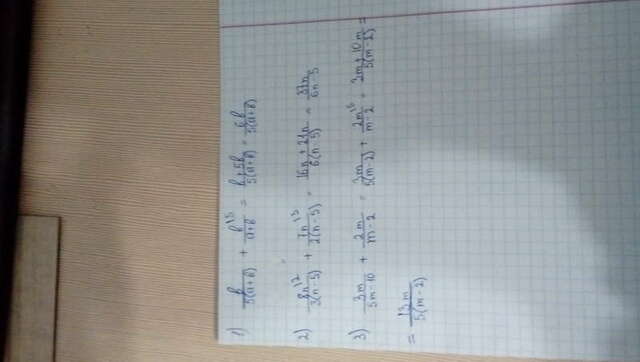 1) b/5(a+b) + b^15/a+b = b+5b/5(a+b) = 6b/5(a+b)
2) 8n^12/3(n-5) + 7n^13/2(n-5) = 16n+21n/6(n-5) = 37n/6n-5
3) 3m/5m-10 + 2m/m-2 = 3m/5(m-2) + 2m^15/m-2 = 3m+10m/5(m-2) =
= 13m/5(m-2)